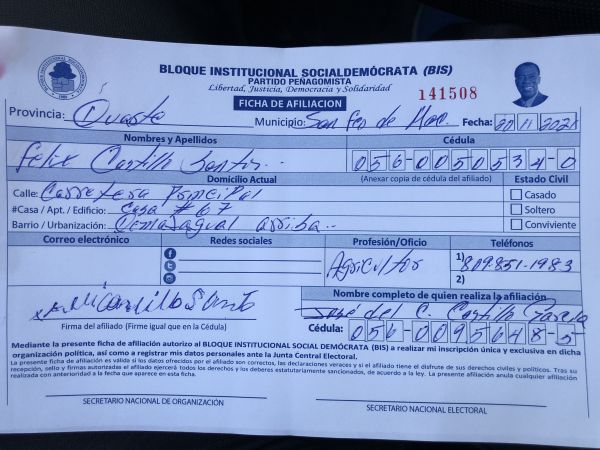 BLOQUE INSTITUCIONAL SOCIALDEMÓCRATA (BIS)
PARTIDO PEÑAGOMISTA
Libertad, Justicia, Democracia y Solidaridad
FICHA DE AFILIACION
141508
Provincia: Duarte Municipio: San Fco de Mac. Fecha: 20/11/2021
Nombres y Apellidos Cédula
Felix Castillo Santos 056-0050534-0
Domicilio Actual (Anexar copia de cédula del afiliado) Estado Civil
Calle: Carretera Principal Casado
#Casa / Apt. / Edificio: Casa # 67 Soltero
Barrio / Urbanización: Cenasagual arriba Conviviente
Correo electrónico Redes sociales Profesión/Oficio Teléfonos
Agricultor 1) 809-851-1983
2)
Nombre completo de quien realiza la afiliación
Jose del C. Castillo Garcia
Firma del afiliado (Firme igual que en la Cédula) Cédula: 056-0095648-5
Mediante la presente ficha de afiliación autorizo al BLOQUE INSTITUCIONAL SOCIAL DEMÓCRATA (BIS) a realizar mi inscripción única y exclusiva en dicha
organización política, así como a registrar mis datos personales ante la Junta Central Electoral.
La presente ficha de afiliación es válida si los datos ofrecidos por el afiliado son correctos, las declaraciones veraces y si el afiliado tiene el disfrute de sus derechos civiles y políticos. Tras su
recepción, sello y firmas autorizadas el afiliado ejercerá todos los derechos y los deberes estatutariamente sancionados, de acuerdo a la ley. La presente afiliación anula cualquier afiliación
realizada con anterioridad a la fecha que aparece en esta ficha.
SECRETARIO NACIONAL DE ORGANIZACIÓN SECRETARIO NACIONAL ELECTORAL